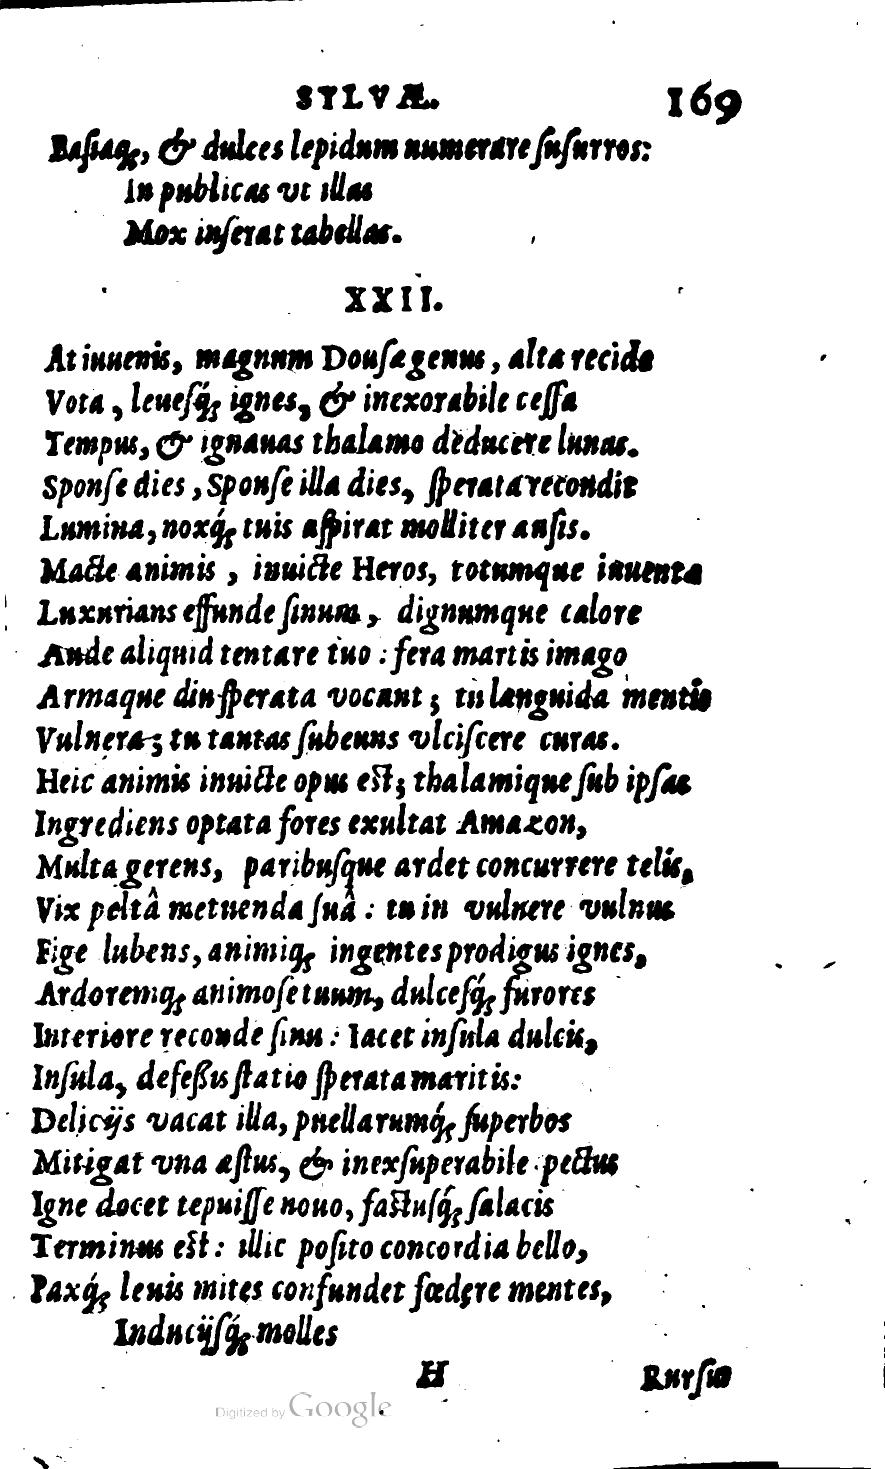 SYLVÆ. 169
Basiaq́;, & dulces lepidum numerare susurros:
In publicas vt illas
Mox inserat tabellas.
XXII.
At iuuenis, magnum Dousa genus, alta recide
Vota, leuesq́; ignes, & inexorabile cessa
Tempus, & ignauas thalamo dèducere lunas.
Sponse dies, Sponse illa dies, sperata recondit
Lumina, noxq́; tuis aspirat molliter ausis.
Macte animis, inuicte Heros, totumque iuuenta
Luxurians effunde sinum, dignumque calore
Aude aliquid tentare tuo: fera martis imago
Armaque diu sperata vocant; tu languida mentis
Vulnera; tu tantas subeuns vlciscere curas.
Heic animis inuicte opus est; thalamique sub ipsas
Ingrediens optata fores exultat Amazon,
Multa gerens, paribusque ardet concurrere telis,
Vix peltâ metuenda suâ: tu in vulnere vulnus
Fige lubens, animiq; ingentes prodigus ignes,
Ardoremq; animose tuum, dulcesq́; furores
Interiore reconde sinu: Iacet insula dulcis,
Insula, defeßis statio sperata maritis:
Delicijs vacat illa, puellarumq́; superbos
Mitigat vna æstus, & inexsuperabile pectus
Igne docet tepuisse nouo, fastusq́; salacis
Terminus est: illic posito concordia bello,
Paxq́; leuis mites confundet fœdere mentes,
Inducijsq́; molles
H Rursus
Digitized by Google